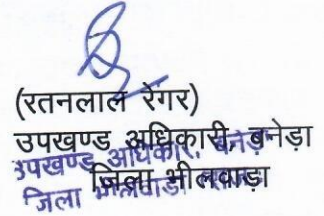 (रतनलाल रेगर)
उपखण्ड अधिकारी, बनेड़ा
जिला भीलवाड़ा
उपखण्ड अधिकारी, बनेड़ा
जिला भीलवाड़ा